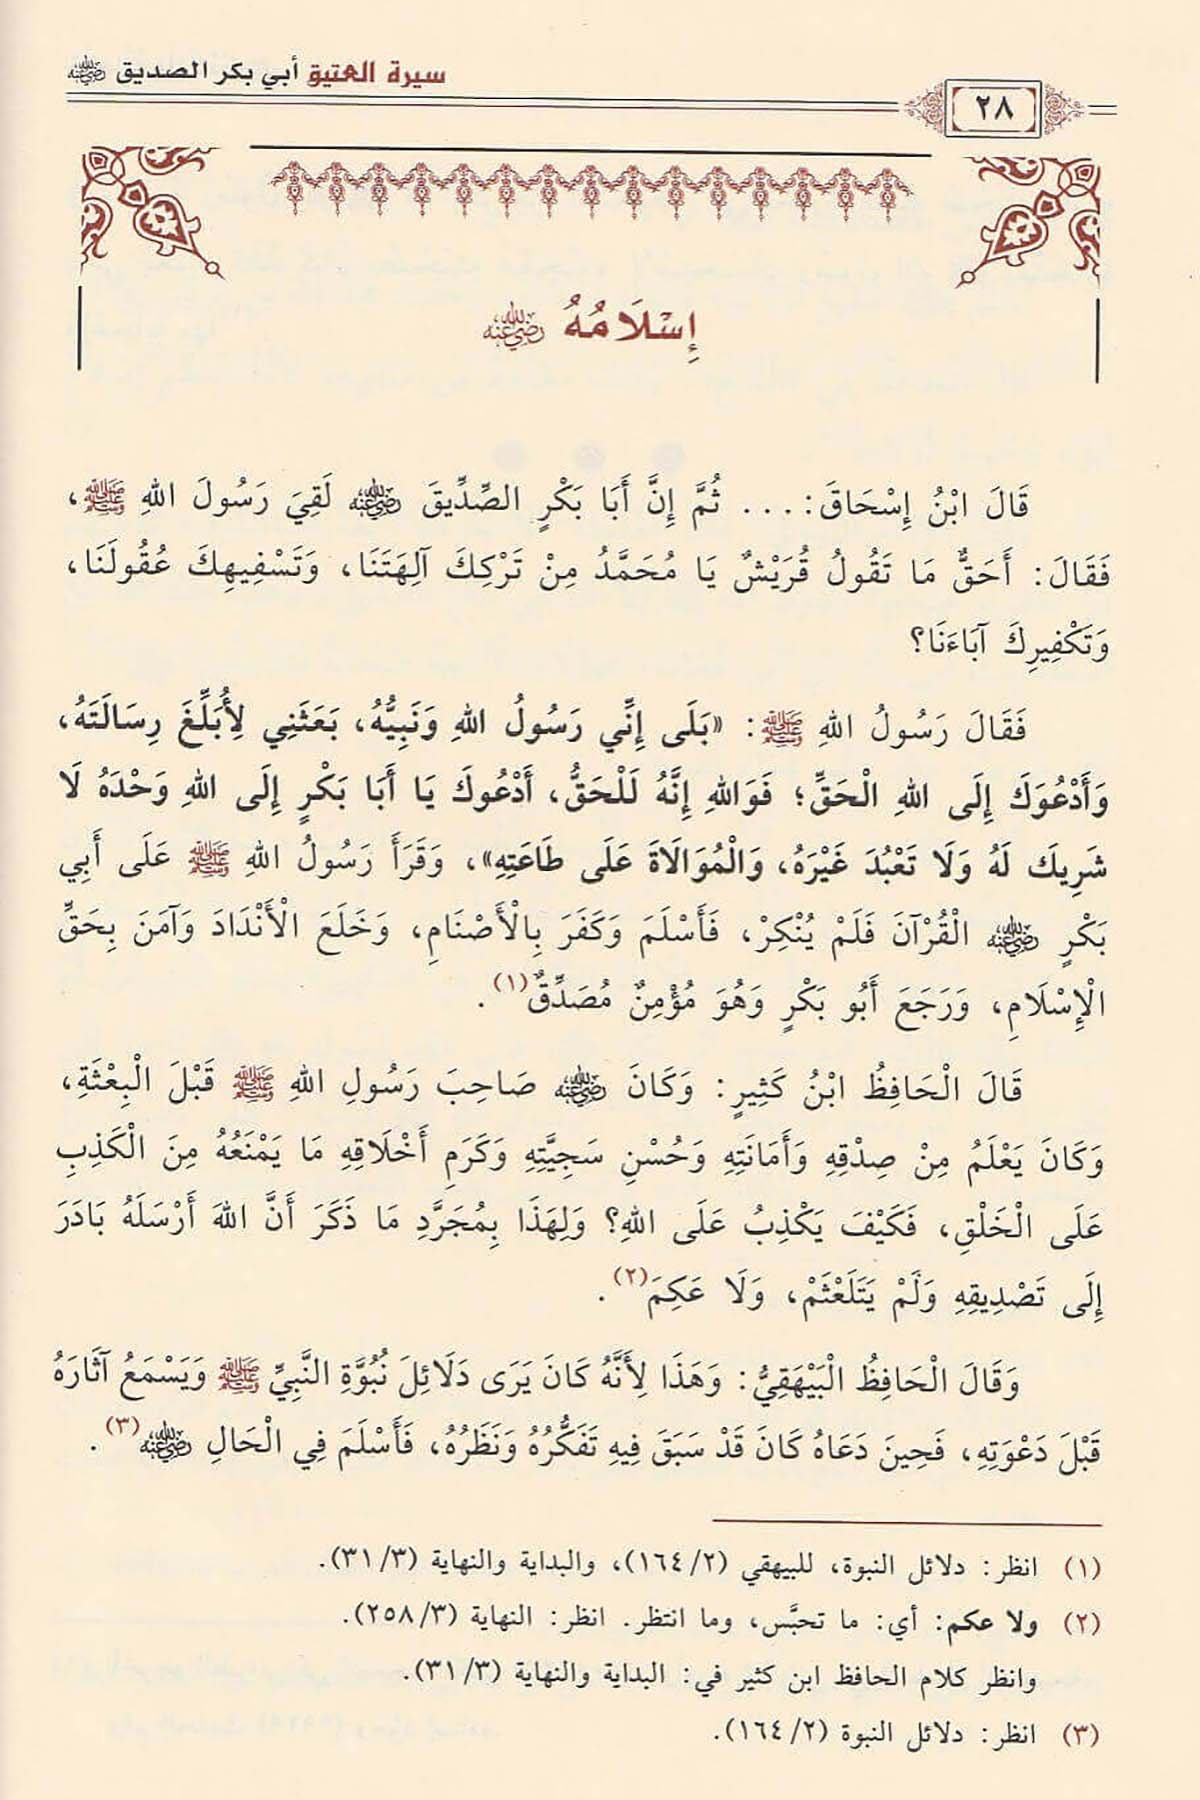 سيرة العتيق أبي بكر الصديق رضي الله عنه
٢٨
إِسْلَامُهُ رضي الله عنه
قَالَ ابْنُ إِسْحَاقَ: ... ثُمَّ إِنَّ أَبَا بَكْرٍ الصِّدِّيقَ رضي الله عنه لَقِيَ رَسُولَ اللهِ ﷺ،
فَقَالَ: أَحَقٌّ مَا تَقُولُ قُرَيْشٌ يَا مُحَمَّدُ مِنْ تَرْكِكَ آلِهَتَنَا، وَتَسْفِيهِكَ عُقُولَنَا،
وَتَكْفِيرِكَ آبَاءَنَا؟
فَقَالَ رَسُولُ اللهِ ﷺ: «بَلَى إِنِّي رَسُولُ اللهِ وَنَبِيُّهُ، بَعَثَنِي لِأُبَلِّغَ رِسَالَتَهُ،
وَأَدْعُوَكَ إِلَى اللهِ الْحَقِّ؛ فَوَاللهِ إِنَّهُ لَلْحَقُّ، أَدْعُوكَ يَا أَبَا بَكْرٍ إِلَى اللهِ وَحْدَهُ لَا
شَرِيكَ لَهُ وَلَا تَعْبُدَ غَيْرَهُ، وَالْمُوَالَاةَ عَلَى طَاعَتِهِ»، وَقَرَأَ رَسُولُ اللهِ ﷺ عَلَى أَبِي
بَكْرٍ رضي الله عنه الْقُرْآنَ فَلَمْ يُنْكِرْ، فَأَسْلَمَ وَكَفَرَ بِالْأَصْنَامِ، وَخَلَعَ الْأَنْدَادَ وَآمَنَ بِحَقِّ
الْإِسْلَامِ، وَرَجَعَ أَبُو بَكْرٍ وَهُوَ مُؤْمِنٌ مُصَدِّقٌ(١).
قَالَ الْحَافِظُ ابْنُ كَثِيرٍ: وَكَانَ رضي الله عنه صَاحِبَ رَسُولِ اللهِ ﷺ قَبْلَ الْبِعْثَةِ،
وَكَانَ يَعْلَمُ مِنْ صِدْقِهِ وَأَمَانَتِهِ وَحُسْنِ سَجِيَّتِهِ وَكَرَمِ أَخْلَاقِهِ مَا يَمْنَعُهُ مِنَ الْكَذِبِ
عَلَى الْخَلْقِ، فَكَيْفَ يَكْذِبُ عَلَى اللهِ؟ وَلِهَذَا بِمُجَرَّدِ مَا ذَكَرَ أَنَّ اللهَ أَرْسَلَهُ بَادَرَ
إِلَى تَصْدِيقِهِ وَلَمْ يَتَلَعْثَمْ، وَلَا عَكِمَ(٢).
وَقَالَ الْحَافِظُ الْبَيْهَقِيُّ: وَهَذَا لِأَنَّهُ كَانَ يَرَى دَلَائِلَ نُبُوَّةِ النَّبِيِّ ﷺ وَيَسْمَعُ آثَارَهُ
قَبْلَ دَعْوَتِهِ، فَحِينَ دَعَاهُ كَانَ قَدْ سَبَقَ فِيهِ تَفَكُّرُهُ وَنَظَرُهُ، فَأَسْلَمَ فِي الْحَالِ رضي الله عنه(٣).
(١) انظر: دلائل النبوة، للبيهقي (٢/ ١٦٤)، والبداية والنهاية (٣/ ٣١).
(٢) ولا عكم: أي: ما تحبَّس، وما انتظر. انظر: النهاية (٣/ ٢٥٨).
وانظر كلام الحافظ ابن كثير في: البداية والنهاية (٣/ ٣١).
(٣) انظر: دلائل النبوة (٢/ ١٦٤).